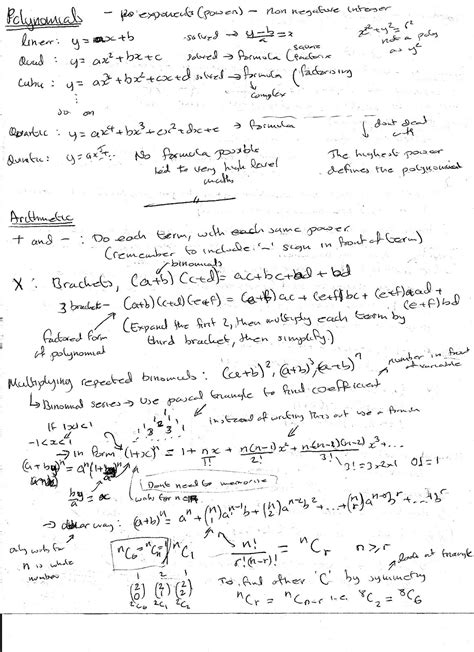 Polynomials - exponents (power) - non negative integer
linear: y = ax + b solved → y-b/a = x
x² + y² = r² not a poly as y²
Quad: y = ax² + bx + c solved → formula (square (factorise
Cubic: y = ax³ + bx² + cx + d solved → formula (factorising
↳ complex
so on
Quartic: y = ax⁴ + bx³ + cx² + dx + e → formula
dont deal with
Quintic: y = ax⁵+.. No formula possible
led to very high level maths
The highest power defines the polynomial
Arithmetic
+ and - : Do each term, with each same power
(remember to include '-' sign in front of term)
binomials
X : Brackets, (a+b)(c+d) = ac + bc + ad + bd
3 bracket - (a+b)(c+d)(e+f) = (e+f)ac + (e+f)bc + (e+f)ad + (e+f)bd
factored form of polynomial
(Expand the first 2, then multiply each term by
third bracket, then simplify.)
Multiplying repeated binomials: (a+b)², (a+b)³, (a-b)⁷
number in front of variable
↳ Binomial series → Use pascal triangle to find coefficient
1
1 2 1
1 3 3 1
instead of writing this out use a formula
If |x|<1
-1<x<1
→ in form (1+x)ⁿ = 1 + nx/1! + n(n-1)x²/2! + n(n-1)(n-2)x³/3! + ...
(a+by)ⁿ = aⁿ(1+
by/a = x
3! = 3x2x1 0! = 1
Dont need to memorise
works for
→ other way: (a+b)ⁿ = aⁿ + (n 1)aⁿ⁻¹b + (n 2)aⁿ⁻²b² + ... + (n r)aⁿ⁻ʳbʳ + ... + bʳ
only works for
n is whole
number
ⁿC₀ = ⁿCₙ = 1 ⁿC₁
n!/r!(n-r)! = ⁿCᵣ n ≥ r
look at triangle
1 2 1
(2 0) (2 1) (2 2)
²C₀ ²C₁ ²C₂
To find other 'C' by symmetry
ⁿCᵣ = ⁿCₙ₋ᵣ i.e. ⁸C₂ = ⁸C₆